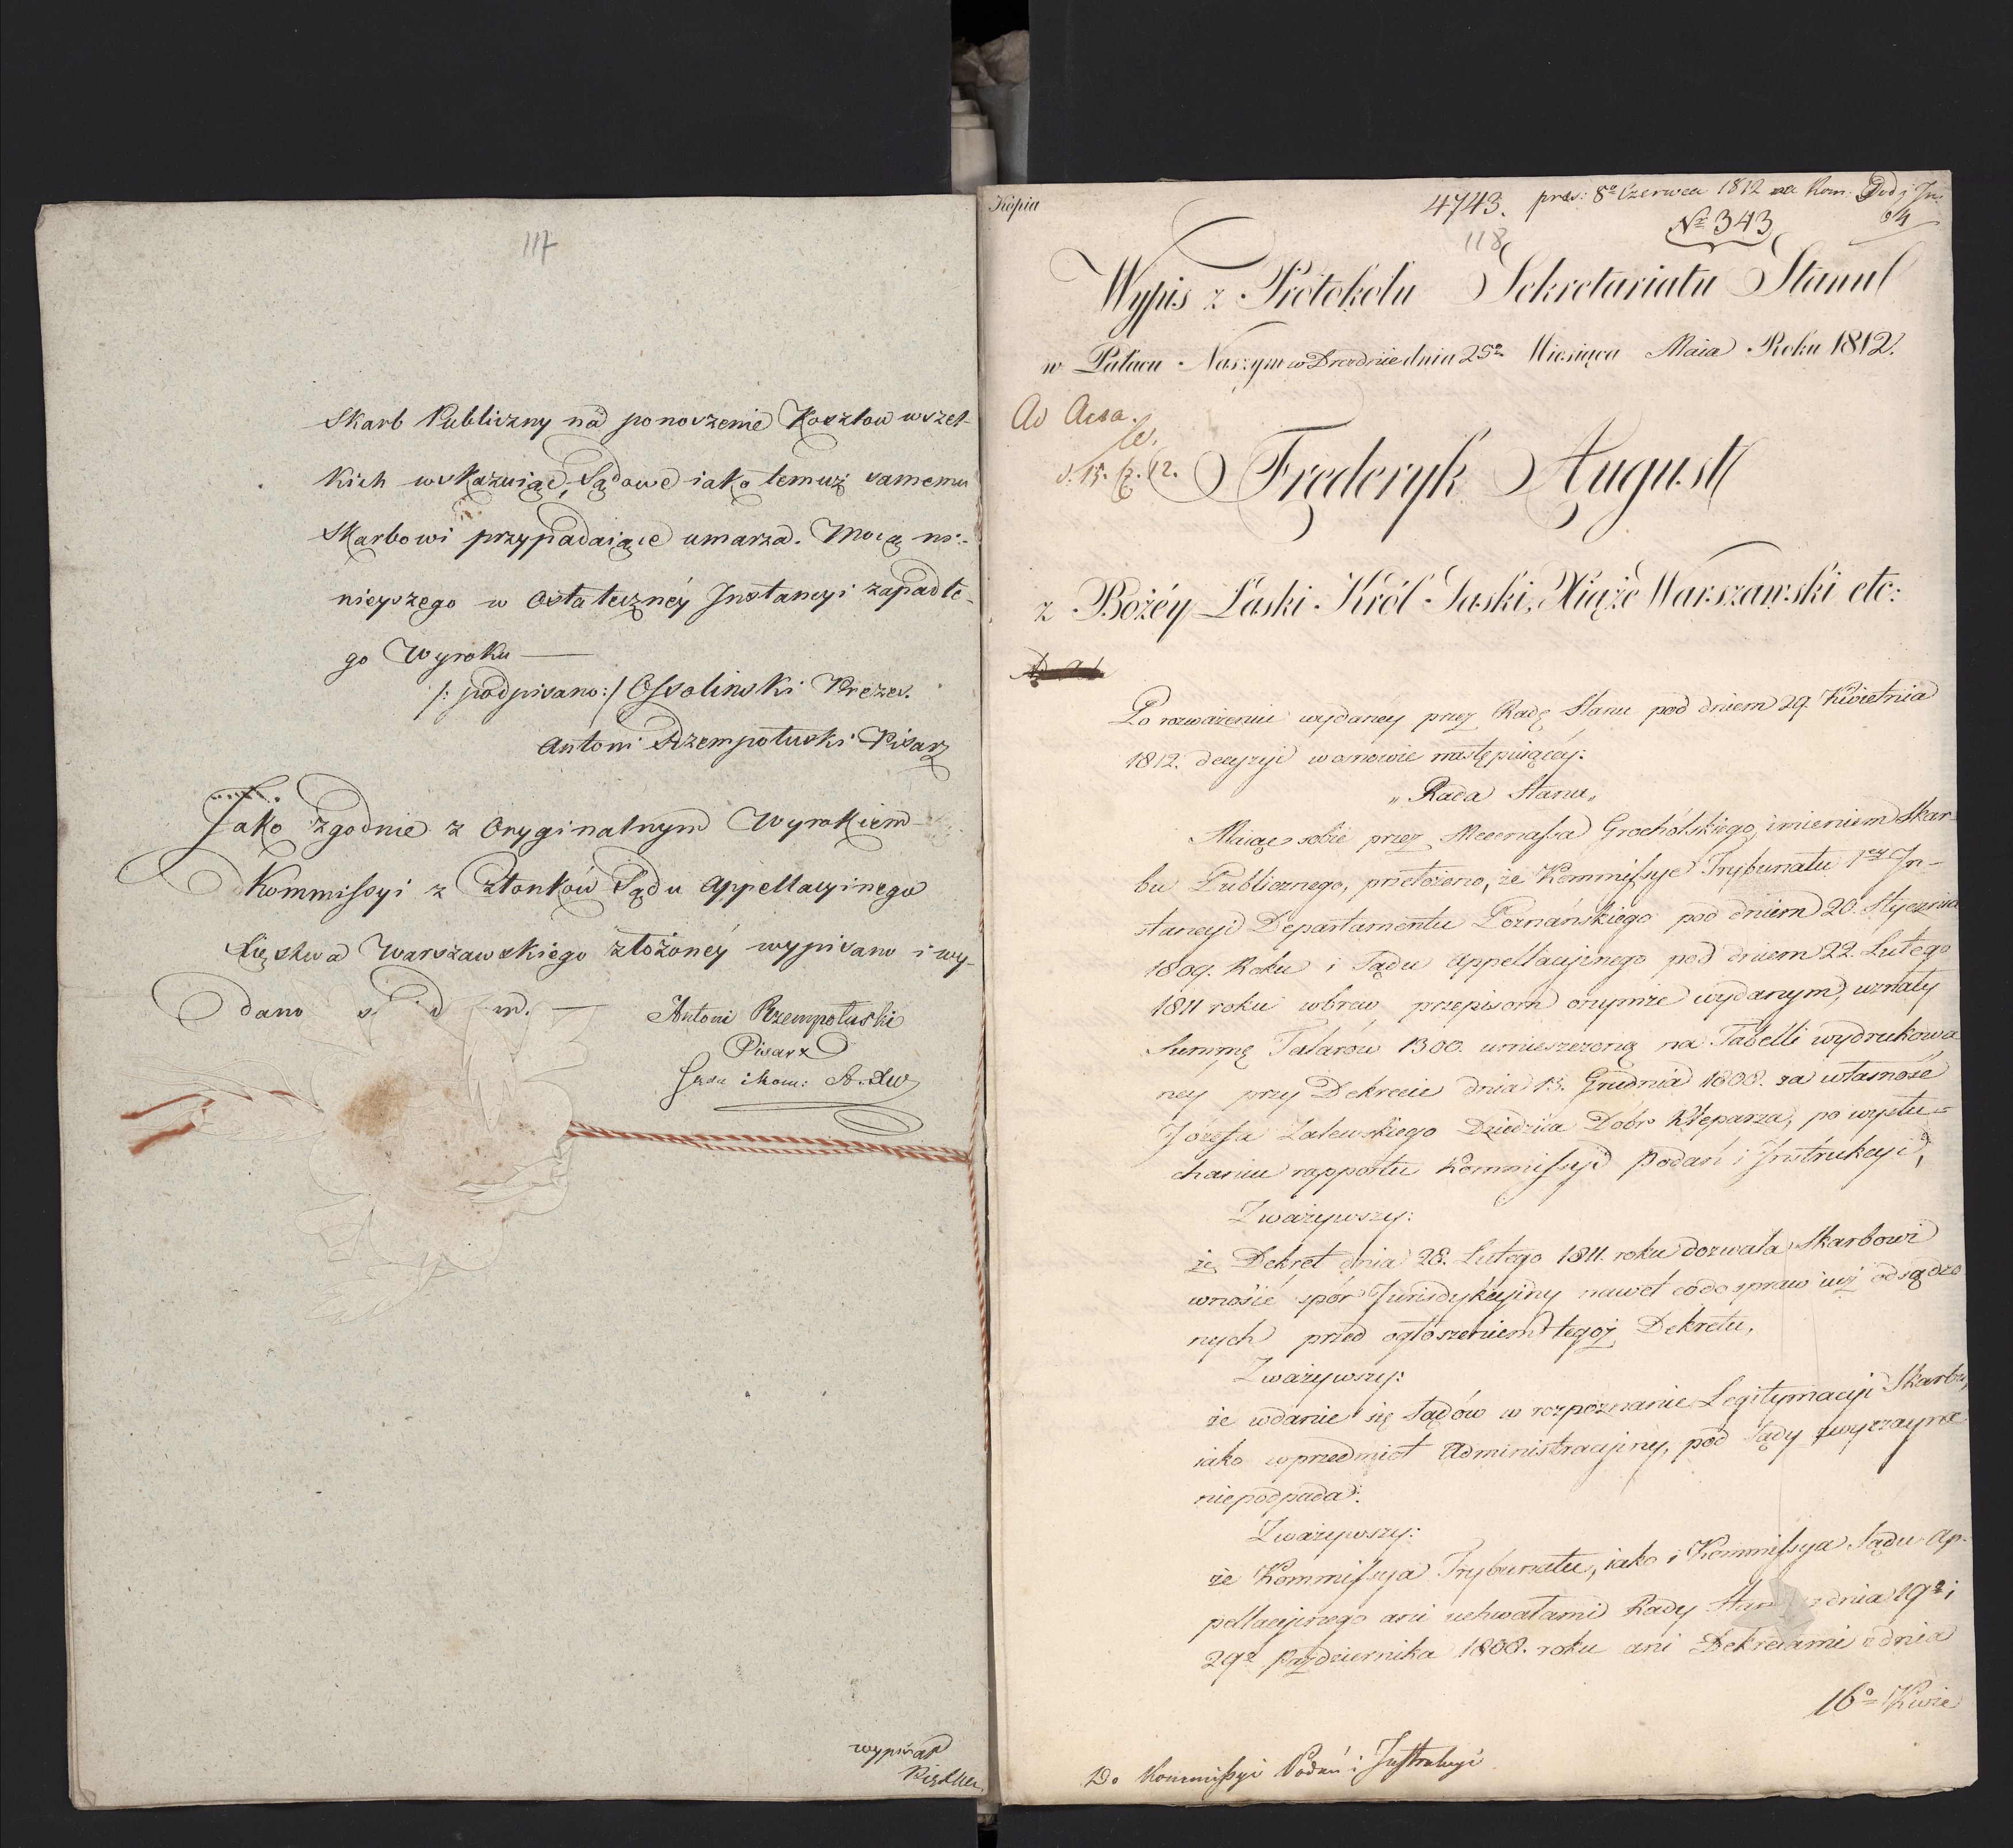 117
Skarb Publiczny na ponoszenie Kosztow wszel-
kich wskazuiąc, Sądowe iako temuż samemu
Skarbowi przypadaiące umarza. Mocą ni-
nieyszego w Ostateczney Instancyi zapadłe-
go Wyroku —
/: podpisano:/ Ossolinski Prezes.
Antoni Rzempołuski Pisarz
Jako Zgodnie z Oryginalnym Wyrokiem
Kommissyi z Członków Sądu Appellacyinego
Xięstwa Warszawskiego złożoney wypisano i wy-
dano
Antoni Rzempołuski
Pisarz
wypisał
Kopia
4743. 8º Czerwca 1812
Nº 343
118
Wypis z Protokołu Sekretariatu Stanu
w Pałacu Naszym w Dreznie dnia 25º Miesiąca Maia Roku 1812.
Ad Acta.
d. 15. 12.
Fryderyk August
z Bożéy Łaski Król Saski, Xiąże Warszawski etc:
Po rozważeniu wydaney przez Radę Stanu pod dniem 29. Kwietnia
1812. decyzyi w osnowie następuiącéy:
„Rada Stanu„
Maiąc sobie przez Mecenassa Grochólskiego, imieniem Skar-
bu Publicznego, przełożono, że Kommissye Trybunału 1ey In-
stancyi Departamentu Poznańskiego pod dniem 20. Stycznia
1809. Roku i Sądu Appellacyinego pod dniem 22. Lutego
1811 roku wbrew przepisom oney mże wydanym, uznały
Summę Talarów 1300. umieszczoną na Tabelli wydrukowa
ney przy Dekrecie dnia 13. Grudnia 1808. za własność
Józefa Zalewskiego Dziedzica Dóbr Kleparza, po wysłu-
chaniu rapportu Kommissyi Podań i Instrukcyi,
Zważywszy:
że Dekret dnia 28. Lutego 1811. roku dozwala Skarbowi
wnosić spór Jurisdykcyiny nawet co do spraw iuż odsądzo
nych przed ogłoszeniem tegoż Dekretu,
Zważywszy:
że wdanie się Sądów w rozpoznanie Legitymacyi Skarbu,
iako w przedmiot Administracyiny, pod Sądy zwyczayne
niepodpada:
Zważywszy:
że Kommissya Trybunału, iako i Kommissya Sądu Ap-
pellacyinego ani uchwałami Rady Stanu z dnia 19º i
29º Października 1808. roku ani Dekretami z dnia
16º Kwie
Do Kommissyi Podań i Instrukcyi